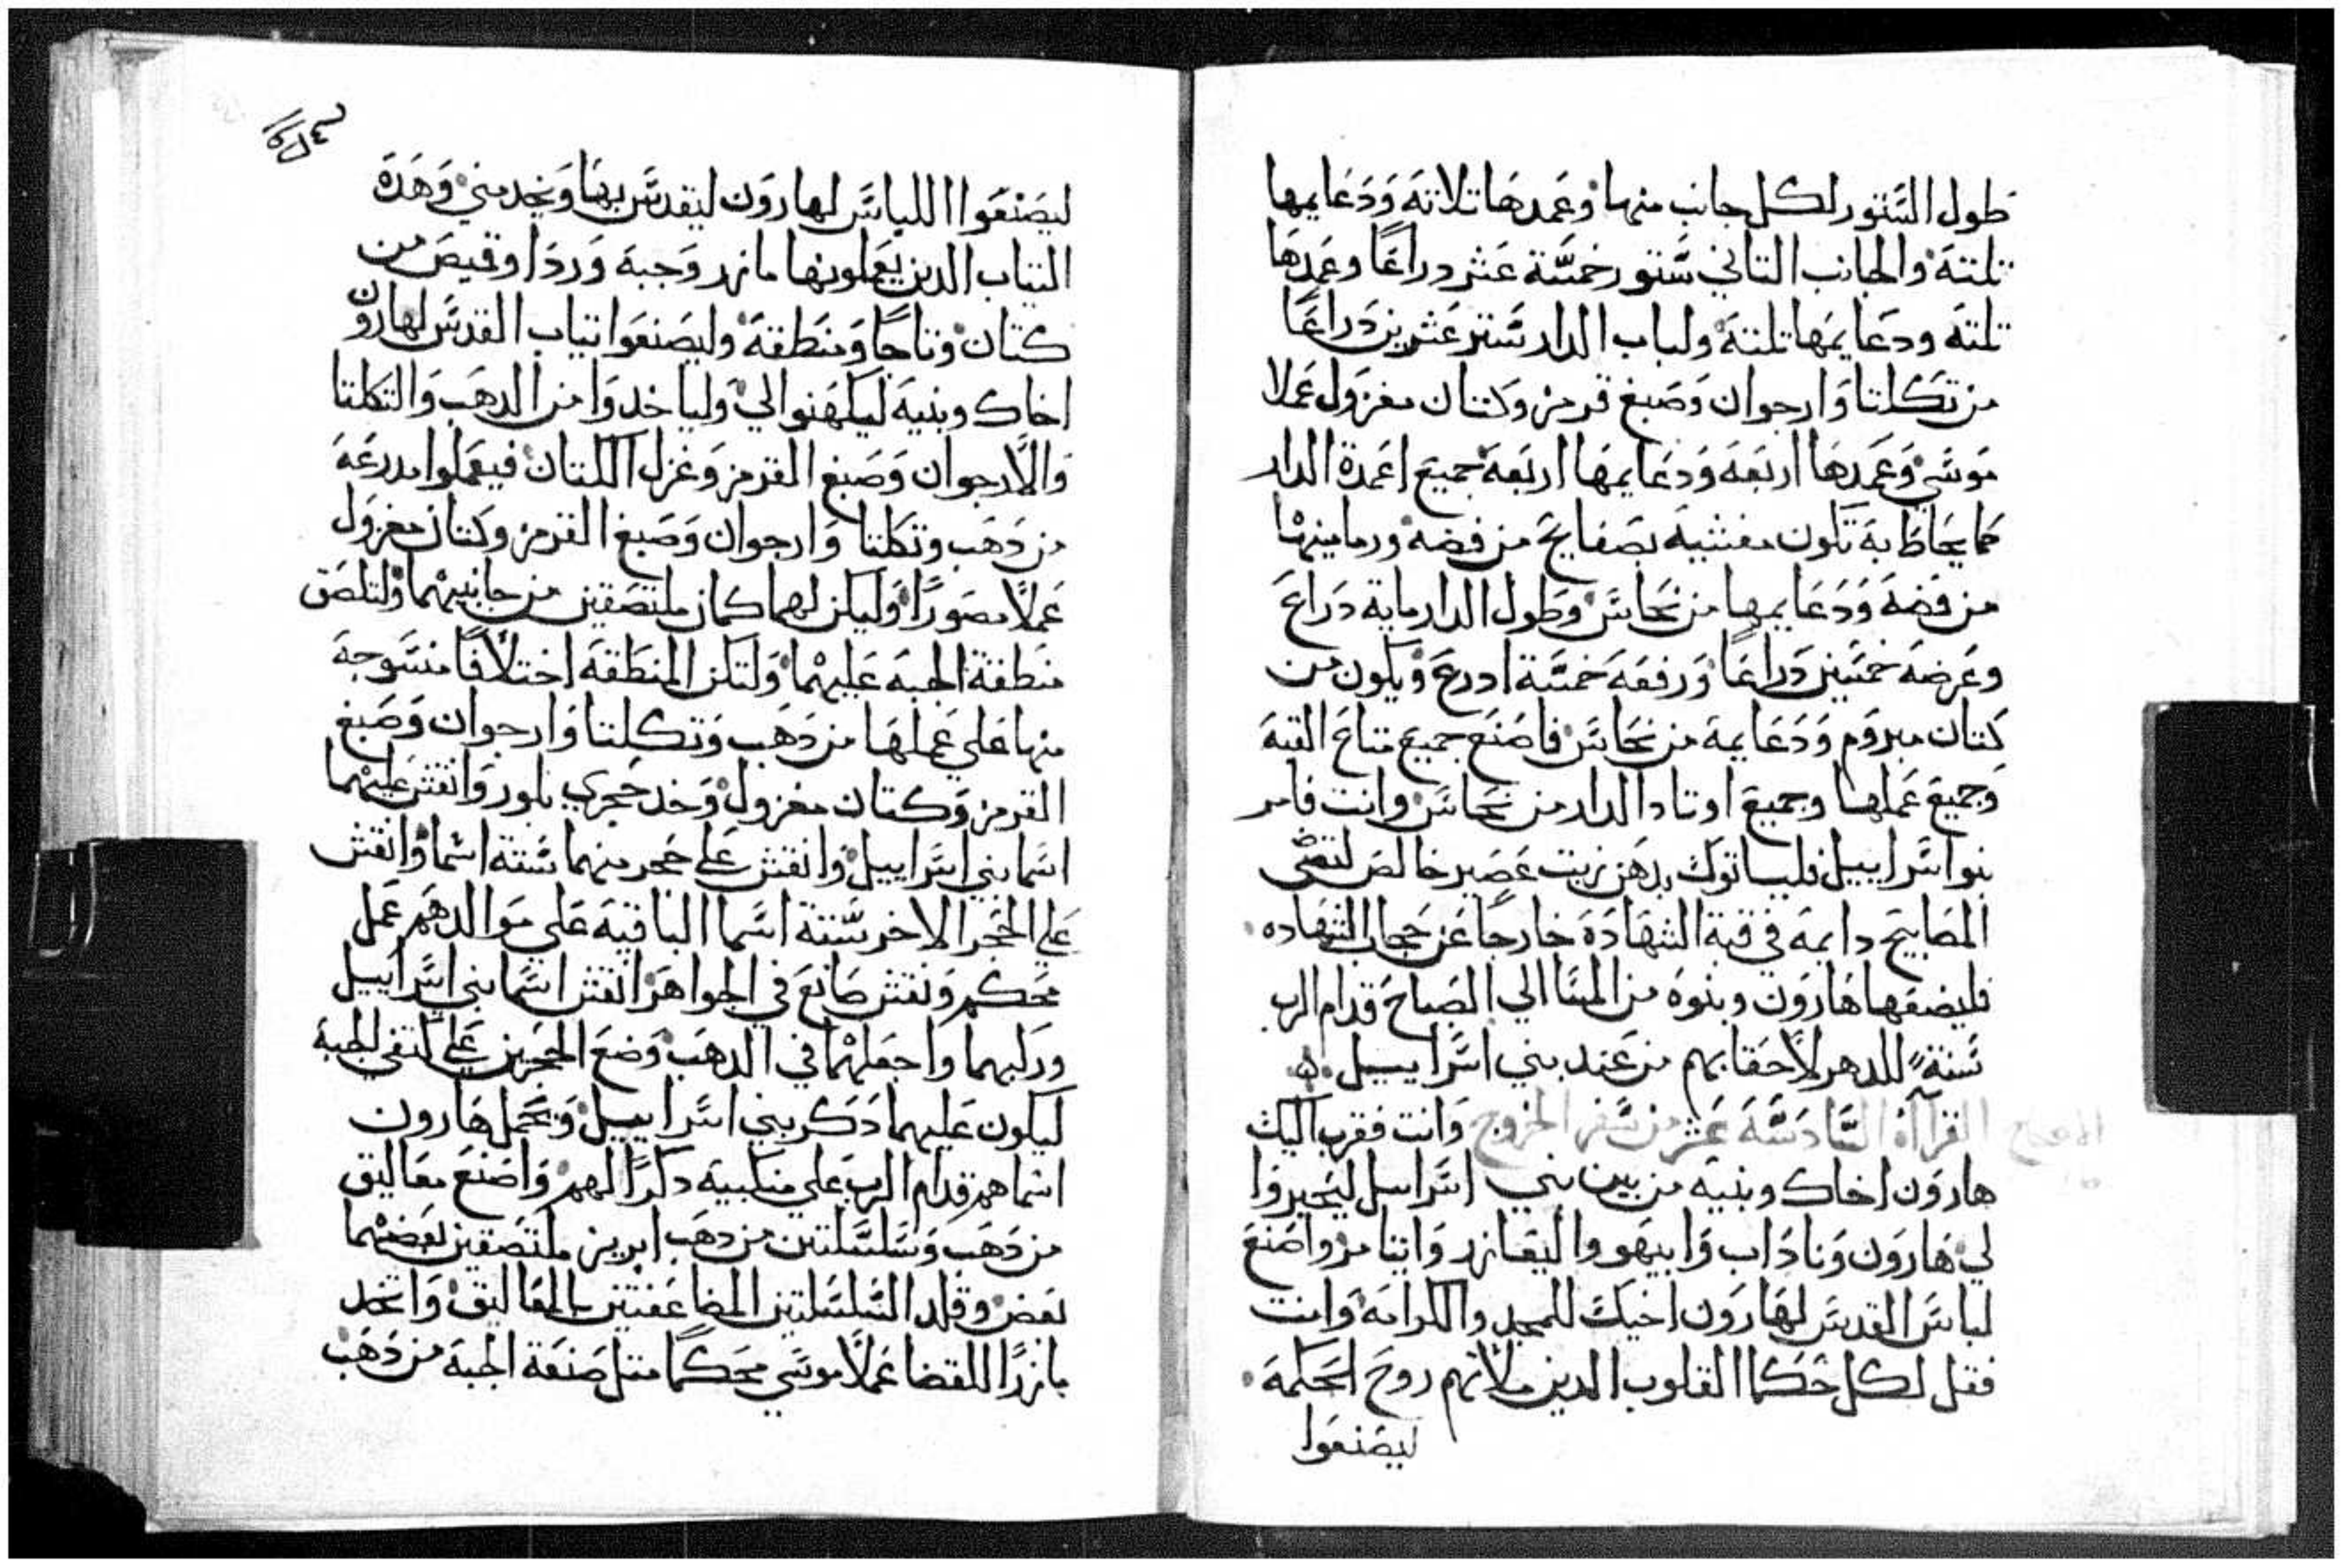 طول الستور لكل جانب منها وعمدها تلاتة ودعايمها
تلتة والجانب التاني ستور خمسة عشر دراعًا وعمدها
تلتة ودعايمها تلتة ولباب الدار ستر عشرين دراعًا
من تكلتا وارجوان وصبغ قرمز وكتان مغزول عملا
موشي وعمدها اربعة ودعايمها اربعة جميع اعمدة الدار
كما يحاط به تكون مغشية بصفايح من فضة ورمامينها
من فضة ودعايمها من نحاس وطول الدار ماية دراع
وعرضه خمسين دراعًا ورفعه خمسة ادرع ويكون من
كتان مبروم ودعايمه من نحاس فاصنع جميع متاع القبة
وجميع عملها وجميع اوتاد الدار من نحاس وانت فامر
بنو اسراييل فلياتوك بدهن زيت عصير خالص لتضي
المصابيح دايمه في قبة الشهادة خارجًا عن حجاب الشهاده
فليضعها هارون وبنوه من المسا الي الصباح قدام الرب
سنةً للدهر لاحقابهم من عند بني اسراييل
القرآأة السادسة عشر من سفر الخروج وانت فقرب اليك
الاصحاح
هارون اخاك وبنيه من بين بني اسراييل ليحبروا
لي هارون وناداب وابيهو واليعازر وايتامر واصنع
لباس القدس لهارون اخيك للمجد والكرامة وانت
فقل لكل حكما القلوب الدين ملاتهم روح الحكمة
ليصنعوا
ليصنعوا اللباس لهارون ليتقدس بها ويخدمني وهده
التياب الدين يعملونها مازر وجبة وردا وقميص من
كتان وتاجا ومنطقة وليصنعوا تياب القدس لهارون
اخاك وبنيه ليكهنوا لي ولياخدوا من الدهب والتكلتا
والارجوان وصبغ القرمز وغزل الكتان فيعملوا مدرعة
من دهب وتكلتا وارجوان وصبغ القرمز وكتان مغزول
عملاً مصورًا وليكن لهما كمان ملتصقين من جانبيهما ولتلصق
منطقة الجبة عليهما ولتكن المنطقة اختلافًا منسوجة
منها علي عملها من دهب وتكلتا وارجوان وصبغ
القرمز وكتان مغزول وخد حجري بلور وانقش عليهما
اسما بني اسراييل وانقش علي حجر منهما ستة اسما وانقش
علي الحجر الاخر ستة اسما الباقية علي مواالدهم عمل
محكم ونقش صانع في الجواهر انقش اسما بني اسراييل
وركبهما واجعلهما في الدهب وضع الحجرين علي كتفي الجبة
ليكون عليهما دكر بني اسراييل ويحمل هارون
اسماهم قدام الرب علي منكبيه دكرًا لهم واصنع معاليق
من دهب وسلسلتين من دهب ابريز ملتصقين بعضهما
بعض وقلد السلسلتين المضاعفتين بالمعاليق واتخد
مازرًا للقضا عملاً موشي محكمًا متل صنعة الجبة من دهب